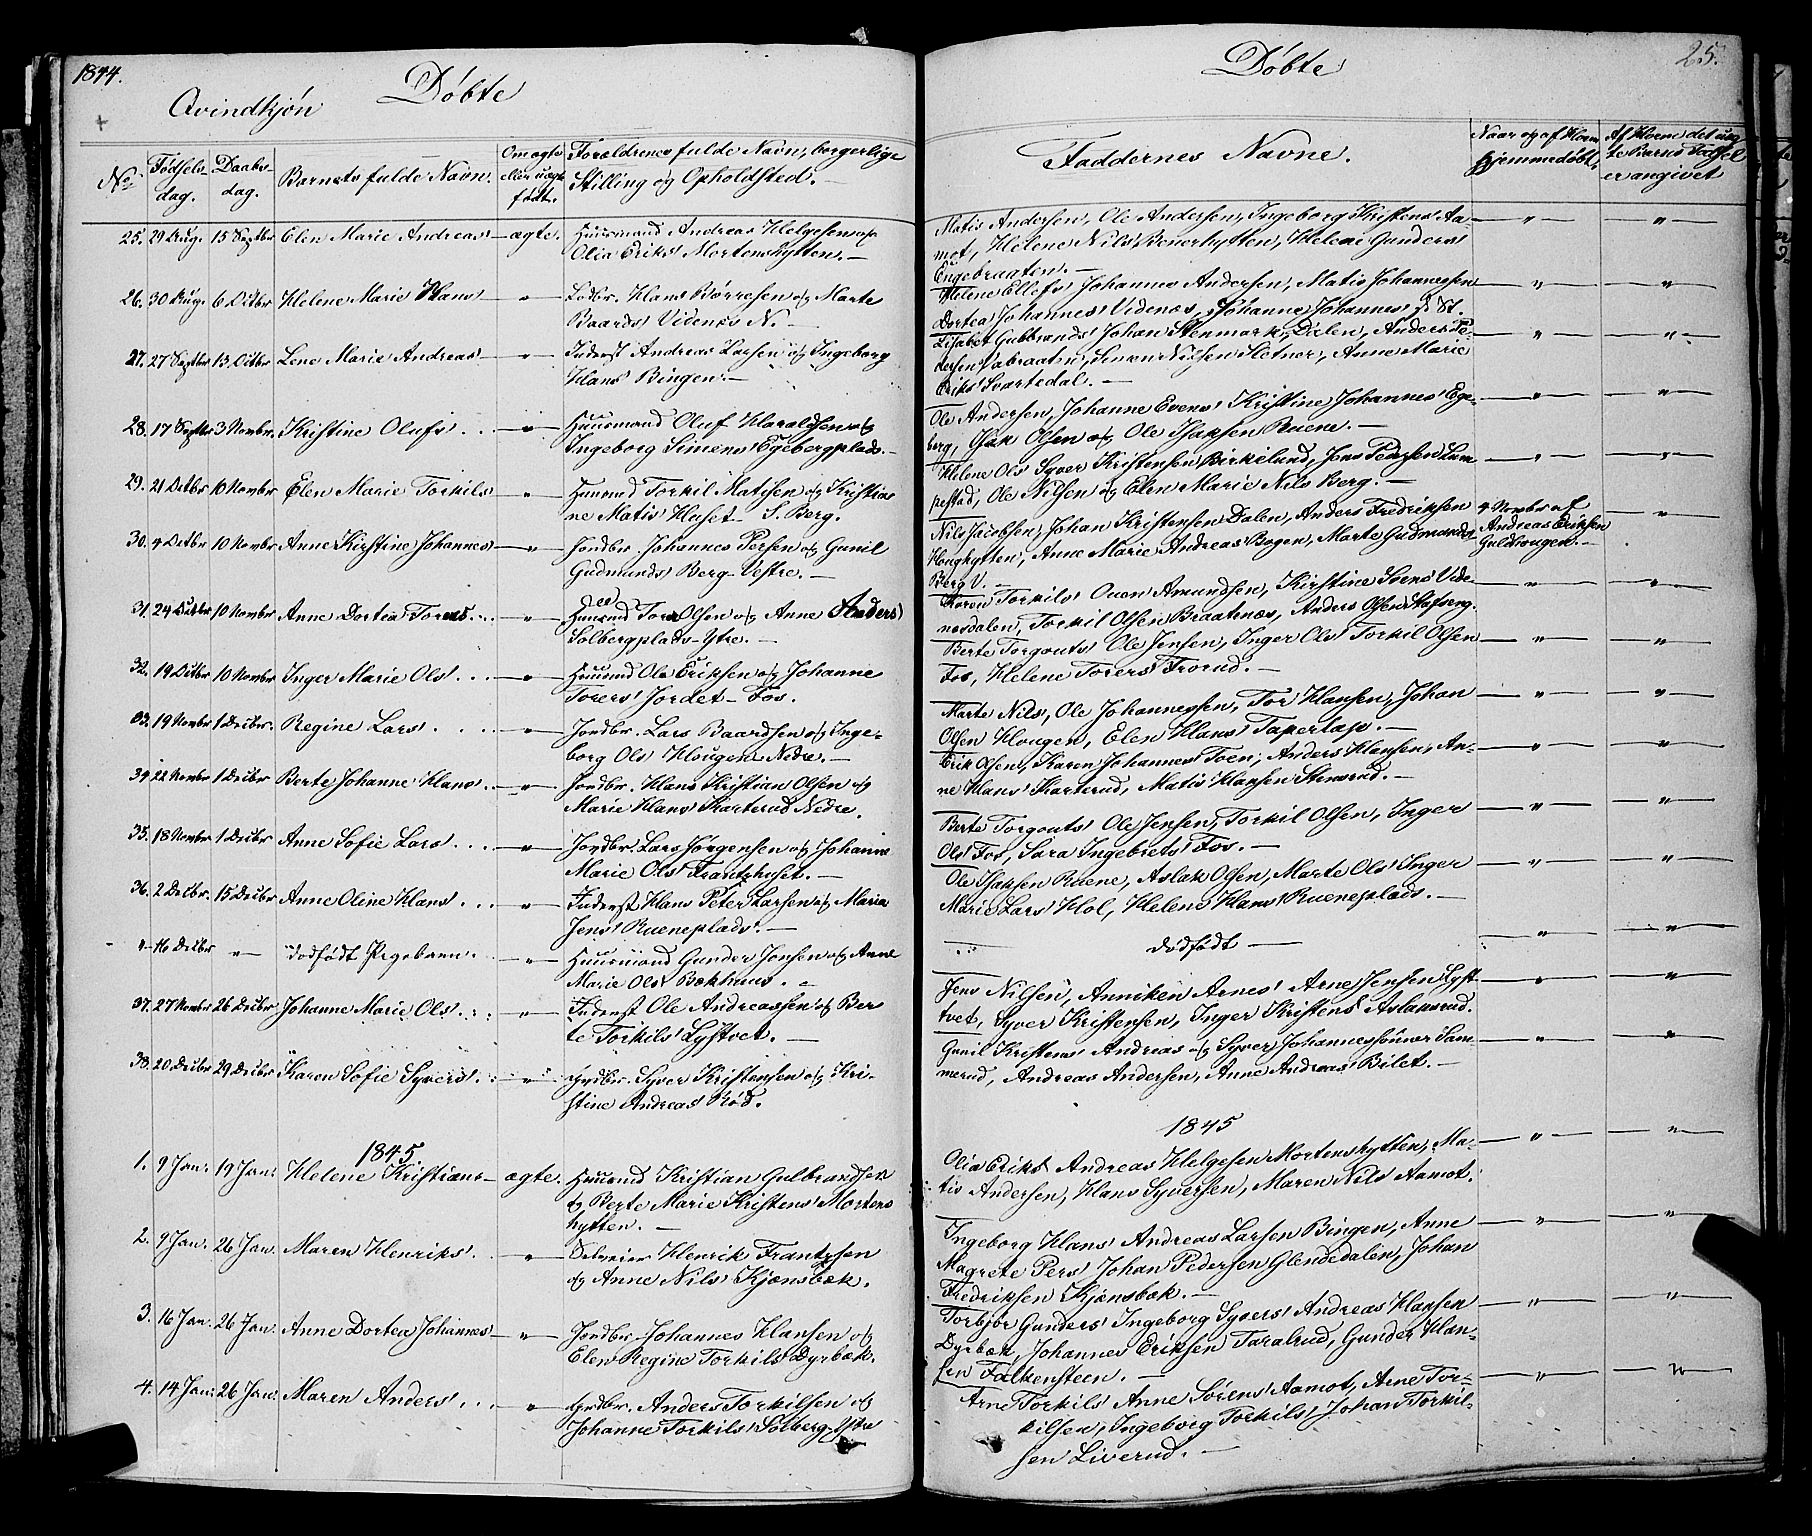 1844.
Døbte
Qvindkjøn
No
Fødsels-
dag.
Daabs-
dag.
Barnets fulde Navn.
Om ægte
eller uægte
født.
Forældrenes fulde Navn, borgerlige
Stilling og Opholdsted.
25. 29 Aug. 15 Septbr Elen Marie Andreas' ægte. Huusmand Andreas Helgesen og
Olia Eriks' Mortenshytten.
26. 30 Aug. 6 Octbr Helene Marie Hans' " Lodbr. Hans Børresen og Marte
Baards' Videnæs N.
27. 27 Septbr 13 Octbr Lene Marie Andreas' " Inderst Andreas Larsen og Ingeborg
Hans' Bingen.
28. 17 Septbr 3 Novbr. Kristine Olufs' " Huusmand Oluf Haraldsen og
Ingeborg Simens' Egebergplads.
29. 21 Octbr 10 Novbr Elen Marie Torkils' " Huusmd Torkil Matisen og Kristia
ne Matis' Huset S. Berg.
30. 4 Octbr 10 Novbr Anne Kirstine Johannes' " Jordbr. Johannes Persen og Gunil
Gudmunds' Berg Vestre.
31. 24 Octbr 10 Novbr Anne Dortea Tores'. " Huusmd Tore Olsen og Anne Anders'
Solbergplads Ytre.
32. 19 Octbr 10 Novbr Inger Marie Ols'. " Huusmd Ole Eriksen og Johanne
Torers' Jordet Fos.
33. 19 Novbr 1 Decbr. Regine Lars'. " Jordbr. Lars Baardsen og Inge-
borg Ols' Hougen Nedre.
34. 22 Novbr 1 Decbr Berte Johanne Hans'. " Jordbr. Hans Kristian Olsen og
Marie Hans' Skarterud Nedre.
35. 18 Novbr 1 Decbr Anne Sofie Lars'. " Jordbr. Lars Jørgensen og Johanne
Marie Ols' Frantzhuset.
36. 2 Decbr. 15 Decbr Anne Oline Hans'. " Inderst Hans Peter Larsen og Maria
Jens' Rueneplads'.
" 16 Decbr " dødfødt Pigebarn. " Huusmand Gunder Jonsen og Anne
Marie Ols' Bækhuus.
37. 27 Novbr 26 Decbr Johanne Marie Ols'. " Inderst Ole Andreassen og Ber
te Torkils' Lystvet.
38. 20 Decbr 29 Decbr Karen Sofie Syvers'. " Grdbr. Syver Kristensen og Kri-
stine Andreas' Rød.
1845
1. 9 Jan. 19 Jan. Helene Kristians' ægte. Huusmd Kristian Gulbrandsen
og Berte Marie Kristens' Mortens
hytten.
2. 9 Jan. 26 Jan. Maren Henriks'. " Henrik Frantzsen
og Anne Nils' Kjønsbæk.
3. 16 Jan. 26 Jan. Anne Dortea Johannes' " Jordbr Johannes Hansen og
Elen Regine Torkils' Dyrbæk.
4. 14 Jan. 26 Jan. Maren Anders'. " Grdbr. Anders Torkilsen og
Johanne Torkils' Solberg Ytre
Døbte
25.
Faddernes Navne.
Naar og af Hvem
hjemmedøbt.
Af Hvem det uæg
te Barns Fødsel
er angivet
Matis Andersen, Ole Andersen, Ingeborg Kristens' Aa-
mot, Helene Nils' Benerhytten, Helene Gunders'
Engebraaten.
Helene Ellefs' Johannes Andersen, Matis Johannessen
Dortea Johannes' Videnæs, Johanne Johannes' St.
Lisabet Gulbrands' Johan Stenmark, Dalen, Anders Pe-
dersen Aabraaten, Simen Nilsen Sletner, Anne Marie
Eriks' Svartedal.
Ole Andersen, Johanne Evens' Kristine Johannes' Ege-
berg, Isak Olsen og Ole Isaksen Ruene.
Helene Ols' Syver Kristensen Birkelund, Jens Pedersen Lam
pestad, Ole Nilsen og Elen Marie Nils' Berg.
Nils Jacobsen, Johan Kristensen Dalen, Anders Fredriksen
Houghytten, Anne Marie Andreas' Bogen, Marte Gudmunds'
Berg V.
4 Novbr af
Andreas Eriksen
Guldhougen.
Karen Torkils' Ouen Amundsen, Kirstine Svens' Vide-
næsdalen, Torkil Olsen Braatenæs, Anders Olsen Stafseng.
Berte Torgouts' Ole Jensen, Inger Ols' Torkil Olsen
Fos, Helene Torers' Frorud.
Marte Nils', Ole Johannessen, Tor Hansen, Johan
Olsen Hougen, Elen Hans' Taperlap.
Erik Olsen, Karen Johannes' Toen, Anders Hansen, An-
ne Hans' Skarterud, Matis Hansen Stensrud.
Berte Torgouts' Ole Jensen, Torkil Olsen, Inger
Ols' Fos, Sara Ingebrets' Fos.
Ole Isaksen Ruene, Aslak Olsen, Marte Ols' Inger
Marie Lars' Hol, Helene Hans' Rueneplads.
dødfødt
Jens Nilsen, Anniken Arnes' Arne Jensen Lyst
tvet, Syver Kristensen, Inger Kristens' Aslaksrud.
Gunil Kristens' Andreas og Syver Johannessønner Sam-
merud, Andreas Andersen, Anne Andreas' Bilet.
1845
Olia Eriks' Andreas Helgesen Mortenshytten, Ma-
tis Andersen, Hans Syversen, Maren Nils' Aamot.
Ingeborg Hans' Andreas Larsen Bingen, Anne
Magrete Pers' Johan Pedersen Glendedalen, Johan
Fredriksen Kjønsbæk.
Torbjør Gunders' Ingeborg Syvers' Andreas Hansen
Dyrbæk, Johannes Eriksen Taralrud, Gunder Han-
sen Falkensteen.
Arne Torkils' Anne Sørens' Aamot, Arne Tor-
kilsen, Ingeborg Torkils' Johan Torkil-
sen Liverud.